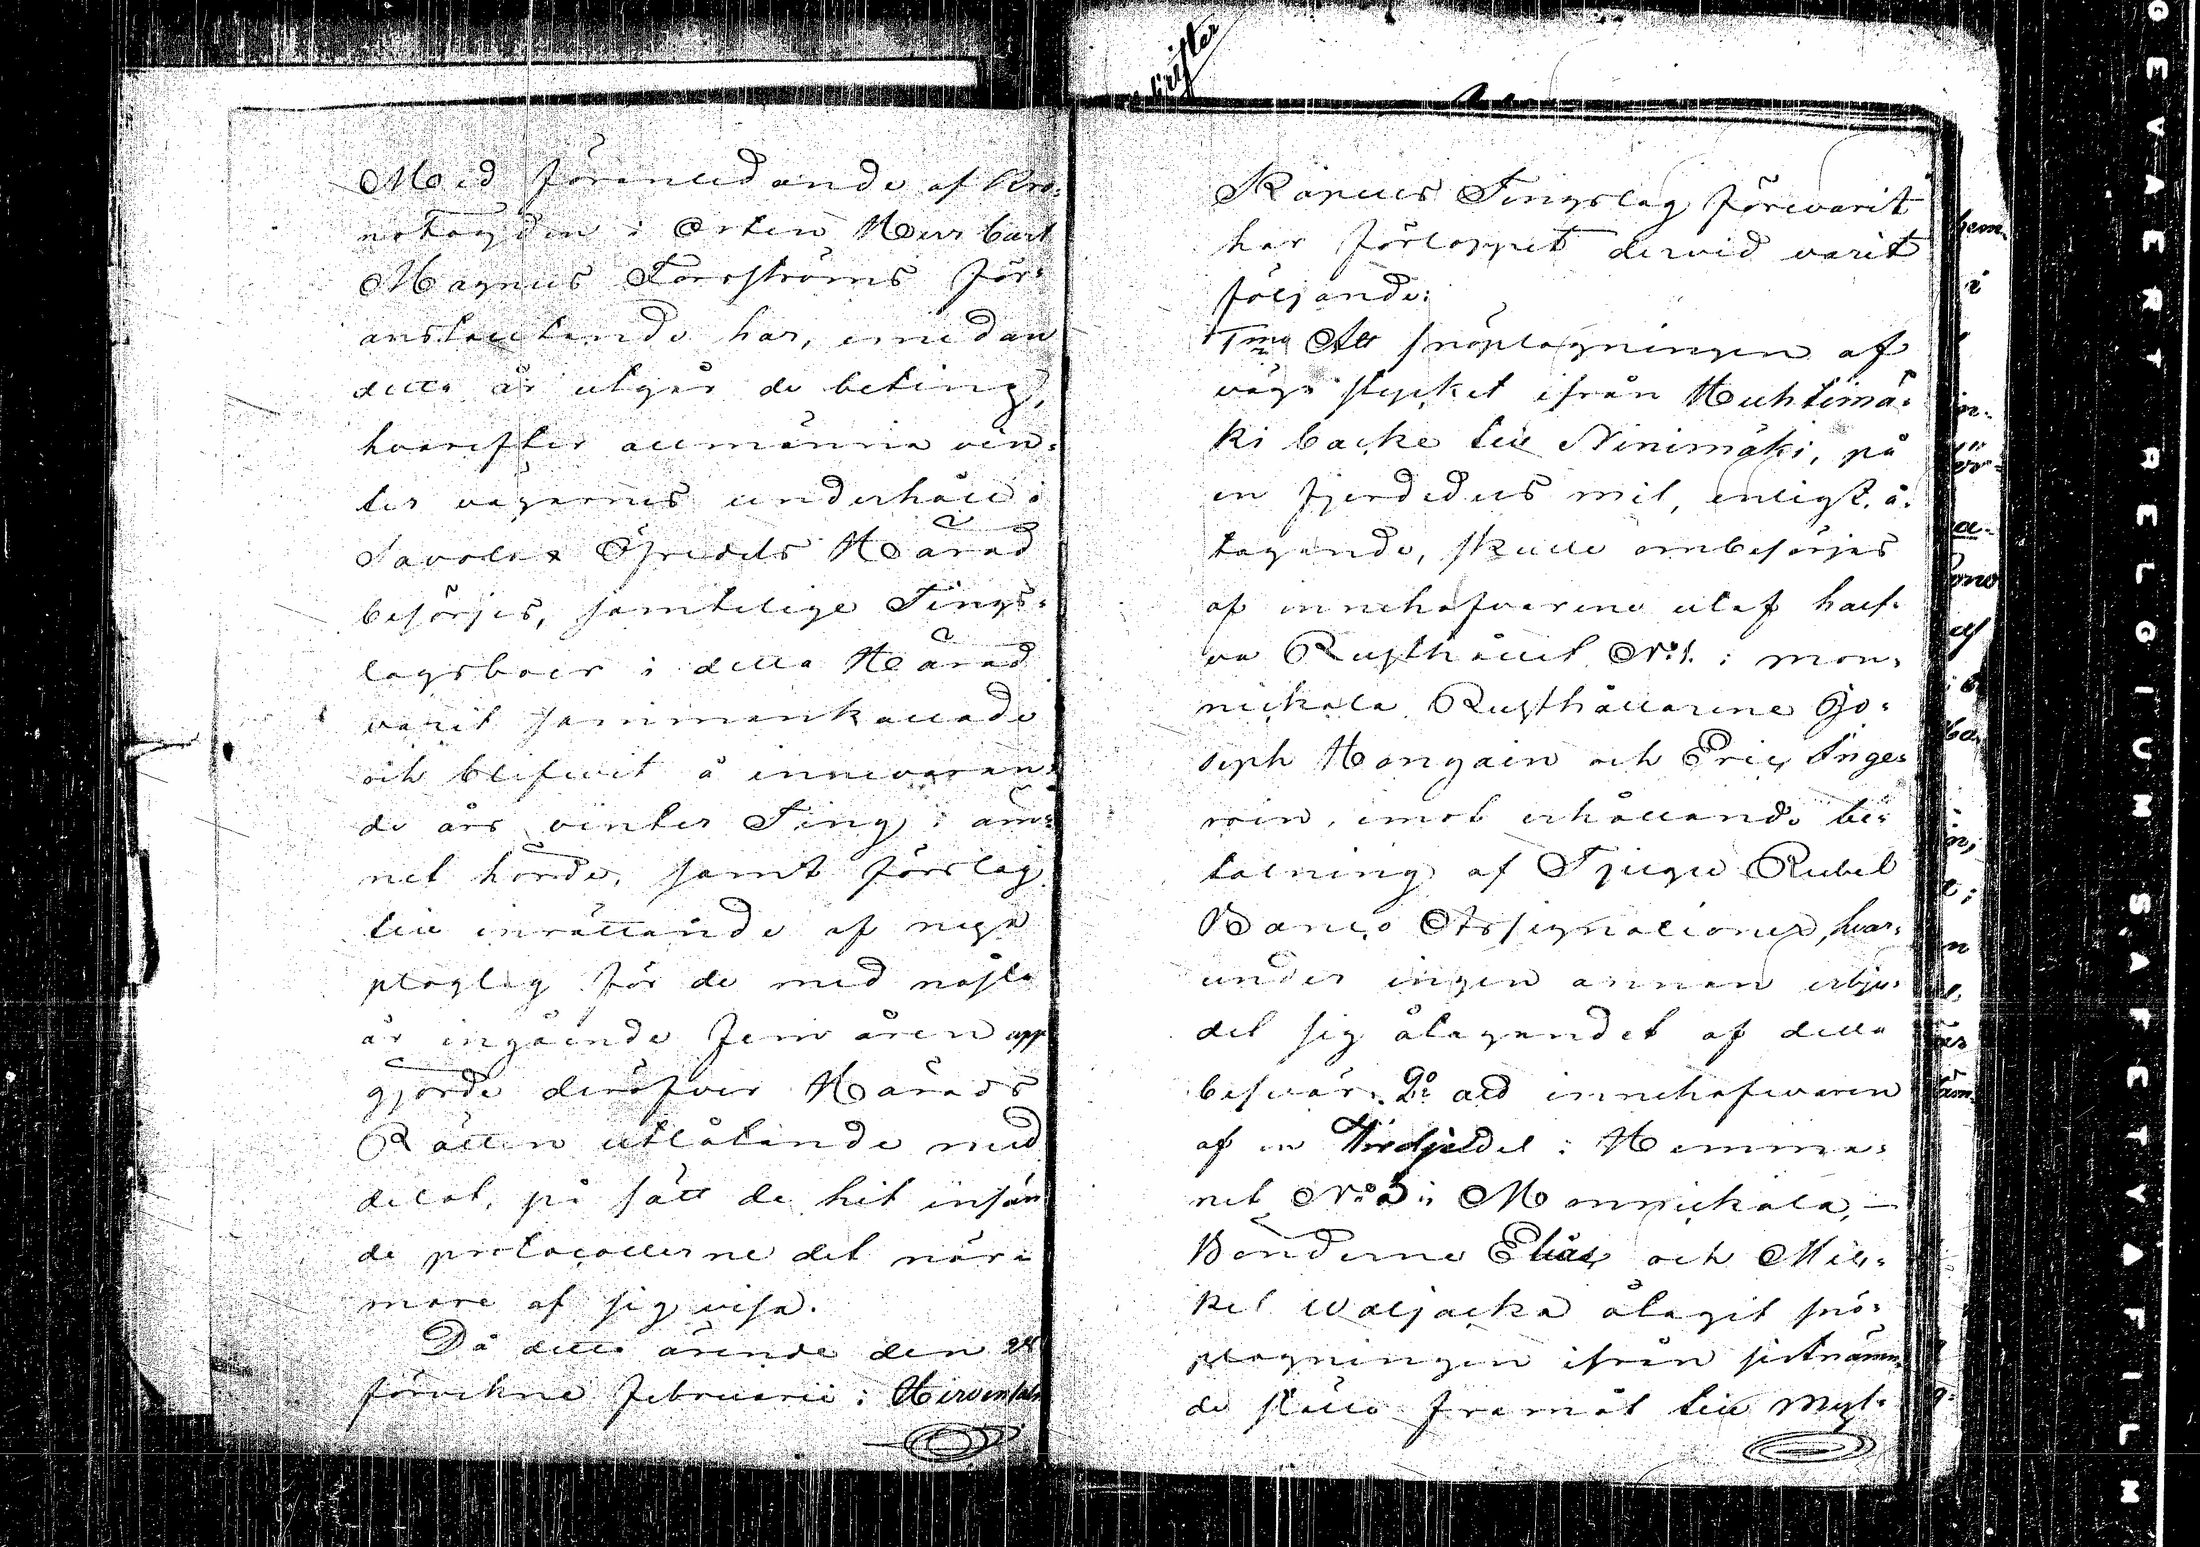 Med föranledande af Kro¬
nofogden i Orten Herr Carl
Magnus Forsströms för¬
anstaltande har, emedan
detta år utgår de beting,
hvarefter allmänna vin¬
ter vägarnes underhåll i
Savolax Öfredels Härad
besörjes, samtelige Tings¬
lagsboer i detta Härad
varit sammankallade
och blifwit å innevaran¬
de års vinter Ting i äm¬
net hörde, samt förslag
till inrättande af nya
ploglag för de med nästa
år ingående fem åren upp
gjorde deröfver Härads
Rätten utlåtande med
delat, på sätt de hit insän
de protocollerne det när¬
mare af sig visa.
Då detta ärende den 28
förvekne Februarii i Hirvensalmi
skrifter
Kapells Tingslag förevarit
har förloppet dervid varit
följande:
1mo Att snöplogningen af
vägastycket ifrån Huhtimä¬
ki backe till Ninimäki, på
en fjerdedels mil, enligt å¬
tagande, skulle ombesörjes
af innehafvarene utaf half¬
va Rusthållet No 1. i Mon¬
nickala Rusthållarene Jo¬
seph Hongain och Eric Inge¬
roin, emot erhållande be¬
talning af Tjugu Rubel
Banco Assignationer, hvar¬
under ingen annan erbju¬
det sig åtagandet af detta
besvär. 2o att innehafwaren
af en Tredjedel i Hemma¬
net No 3 i Monnickala, —
Bönderne Elias och Mic¬
kel Waljacka åtagit snö¬
plogningen ifrån sistnämn¬
de ställe framåt till Myl¬
hem¬
i
GEVAERT BELGIUM SAFETY FILM